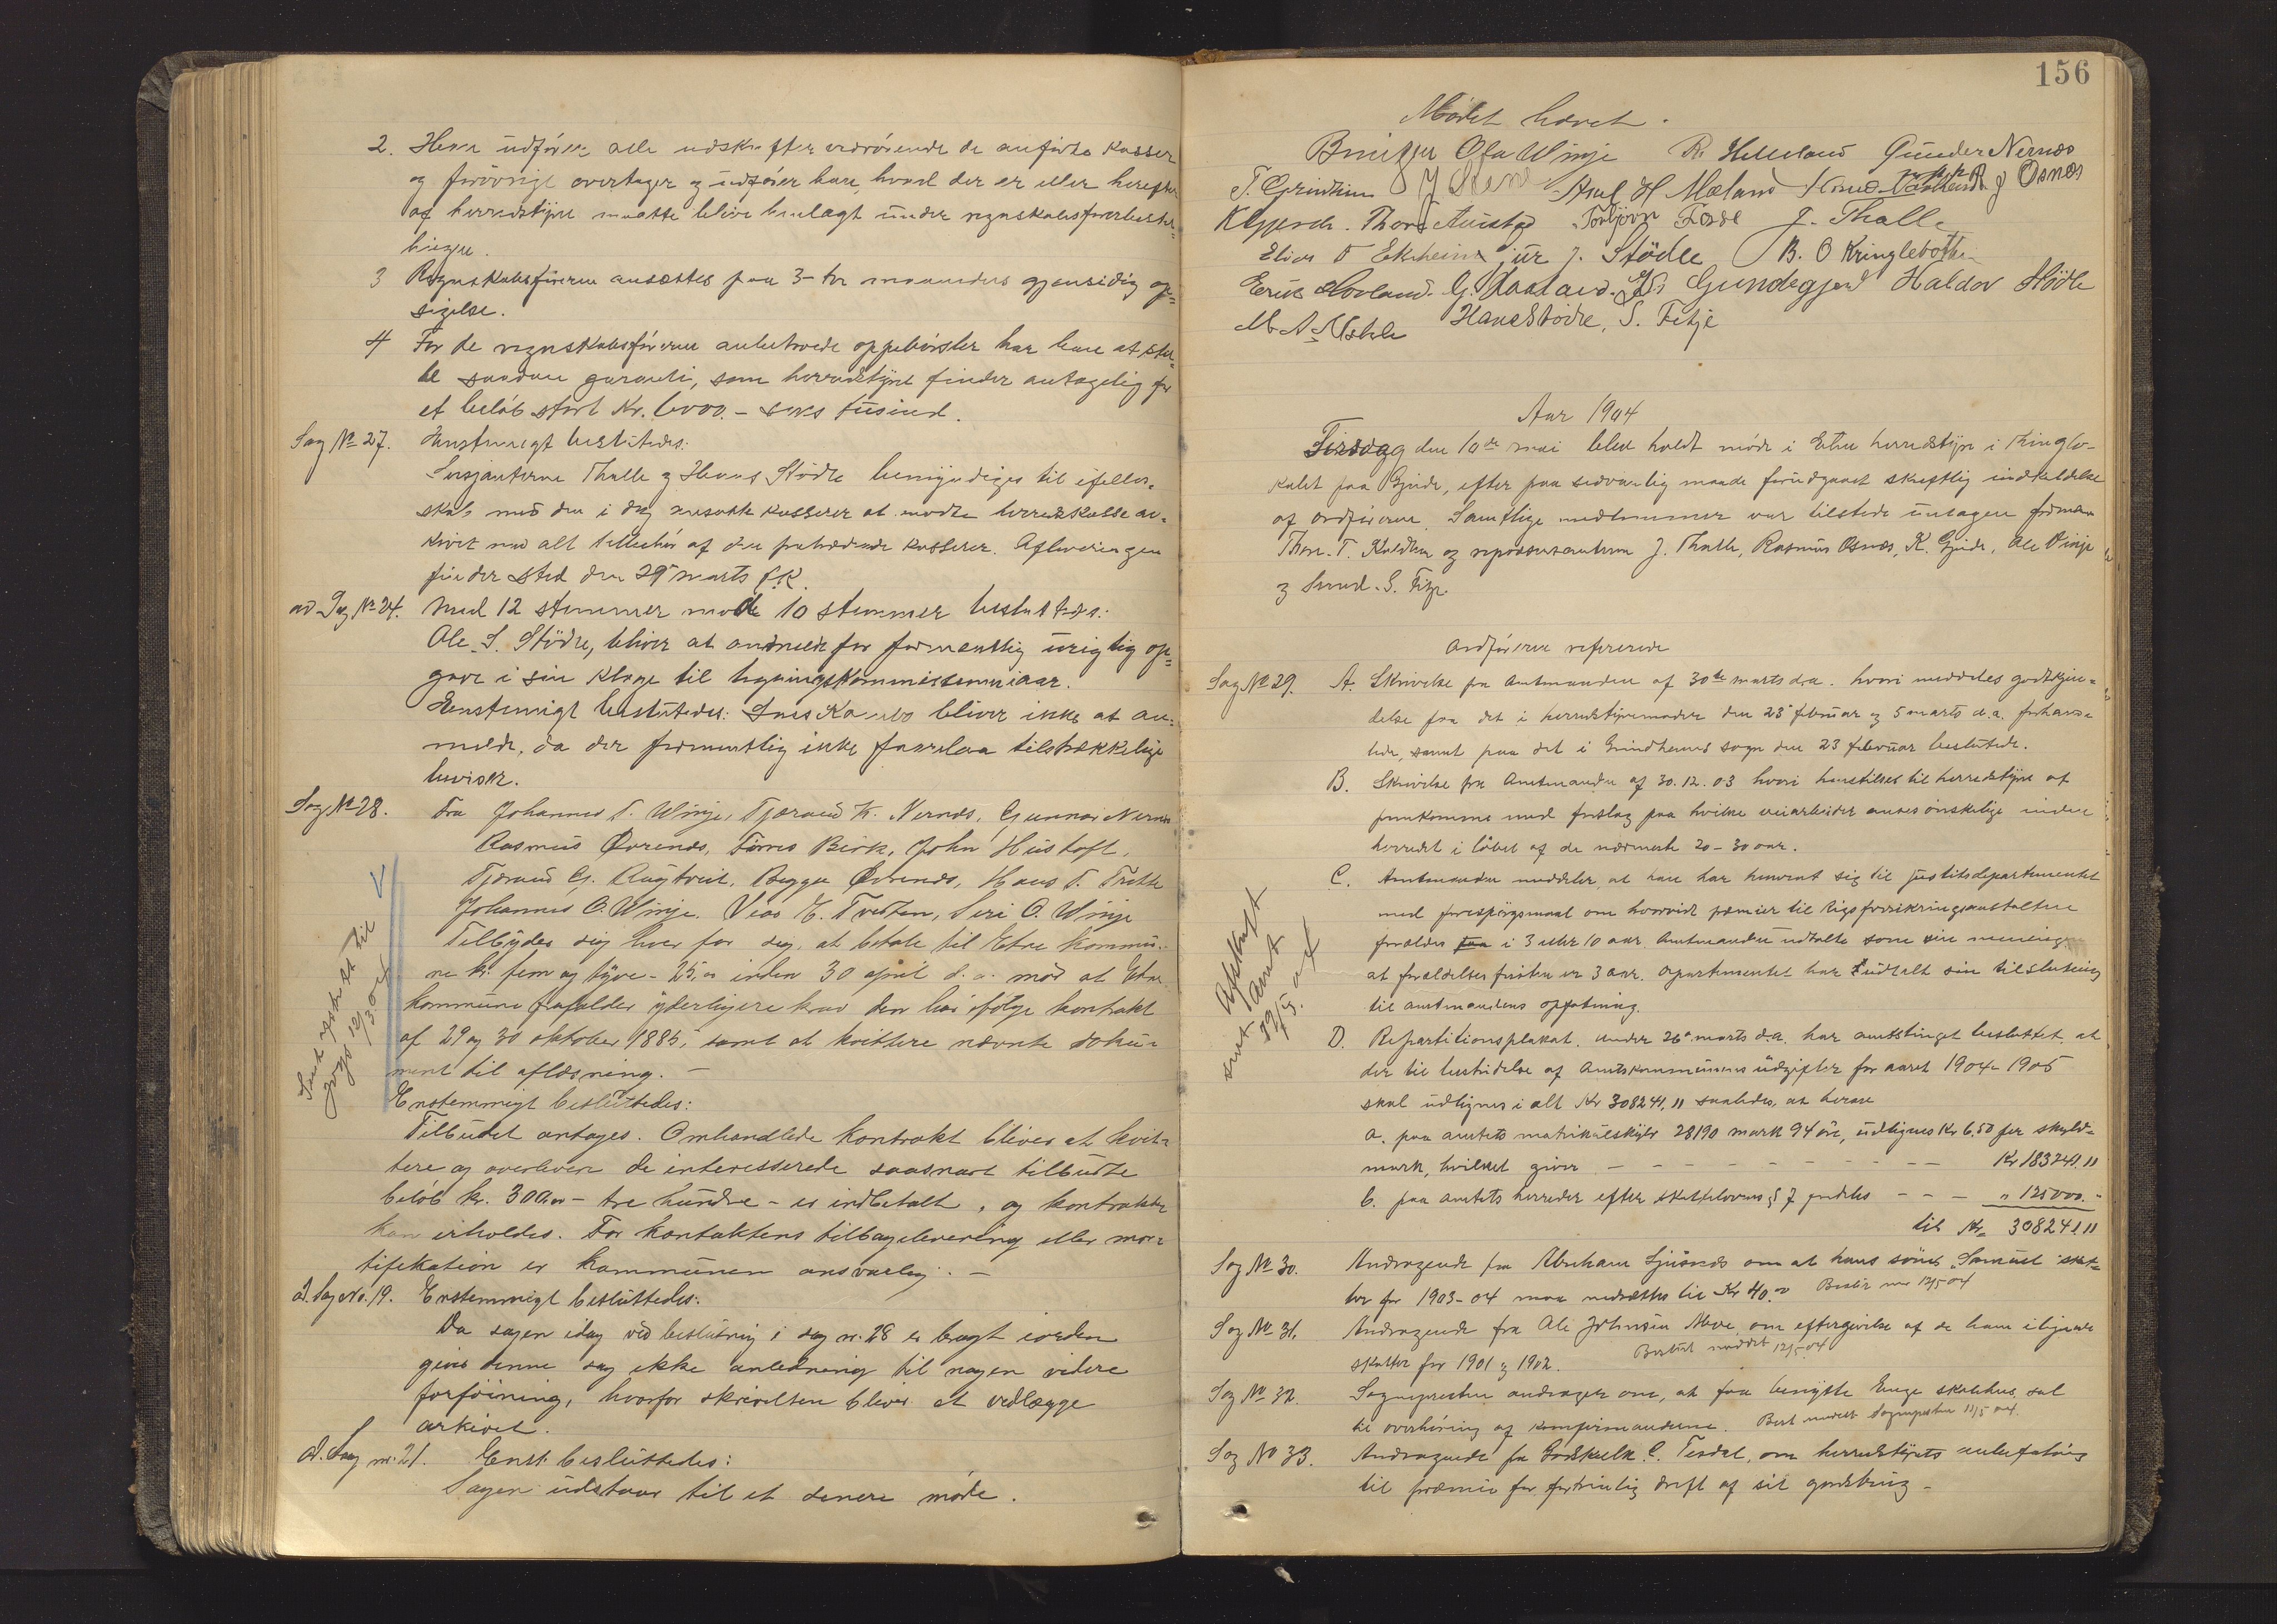 2. Han udfører alle udskrifter vedrørende de anførte kasser
og forøvrigt overtager og udfører han, hvad der er eller herefter
af herredstyret maatte blive henlagt under regnskabsførerbestil=
lingen.
3 Regnskabsføreren ansættes paa 3-tre maaneders gjensidig op=
sigelse.
4 For de regnskabsføreren anbetroede oppebørsler har han at stil=
le saadan garanti, som herredstyret finder antagelig for
et beløb stort Kr. 6000.- sex tusind.
Sag No 27. Enstemmigt besluttedes:
Sersjanterne Thalle og Hans Stödle bemyndiges til i felles-
skab med den i dag ansatte kasserer at modta herredskasse ar-
kivet med alt tilbehør af den fratrædende kasserer. Afleveringen
finder sted den 29 marts f.K.
ad Sag No 24. Med 12 stemmer mod 10 stemmer besluttedes:
Ole S. Stödle, bliver at anmelde for formentlig urigtig op=
gave i sin klage til ligningskommissionen iaar.
Enstemigt besluttedes: bliver ikke at an=
melde, da der formentlig ikke foreelaa tilstrækkelige
beviser.
Sag No 28. Fra Johannes T. Winje, Tjærand K. Nernæs, Gunnar Nernæs
Rasmus Øvrenæs, Tørres Birk, John Hustoft,
Tjærand G. Rugtveit, Bægga Øvrenæs, Hans T. Fritte
Johannes O. Winje. Vias E. Tvedten, Siri O. Winje
Tilbyder sig hver for sig, at betale til Etne kommu-
ne kr. fem og tyve - 25,00 inden 30 april d.a. mod at Etne
kommune frafalder yderligere krav den har ifølge kontrakt
af 29 og 30 oktober 1885, samt at kvittere nævnte doku=
ment til aflæsning. -
Enstemmigt besluttedes:
Tilbudet antages. Omhandlede kontrakt bliver at kvit=
tere og overlevere de interesserede saasnart tilbudte
beløb kr. 300.00 - tre hundre - er indbetalt, og kontrakten
kan erholdes. For kontraktens tilbagelevering eller mor=
tifikation er kommunen ansvarlig. -
ad. Sag No. 19. Enstemmigt besluttedes:
Da sagen idag ved beslutning i sag nr. 28 er bragt iorden
giver denne sag ikke anledning til nogen videre
forføining, hvorfor skrivelsen bliver at vedlægge
arkivet.
ad. Sag nr. 21. Enst. besluttedes:
Sagen udstaar til et senere møde.
156
Mødet hævet.
Ola Winje R. Helleland Gunder Nernæs
T. Grindheim J Steine Aml. H Mæland R J Osnæs
Thore Austad Torbjörn Fosse J. Thalle
Elias O Ekrheim jür J. Stödle B. O Kringlebotten
Erik Hovland. G. Haaland. Gundegjerd Haldor Stödle
M A Hans Stödle, S. Fitje
Aar 1904
Tirsdag den 10de mai blev holdt møde i Etne herredstyre i thinglo-
kalet paa Gjerde, efter paa sedvanlig maade forudgaaet skriftlig indkaldelse
af ordføreren. Samtlige medlemmer var tilstede untagen formæn
Thore T. og repræsentanterne J. Thalle, Rasmus Osnæs, K. Gjerde, Ole Vinje
og S. Fitje.
Ordføreren refererede
Sag No 29. A. Skrivelse fra Amtmanden af 30te marts d.a. hvori meddeles godkjen=
delse paa det i herredstyremøder den 23 februar og 5 marts d.a. forhand-
lede, samt paa det i Grindheims sogn den 23 februar besluttede.
B. Skrivelse fra Amtmanden af 30.12.03 hvori henstilles til herredstyret at
fremkomme med forslag paa hvilke veiarbeider ansees ønskelige inden
herredet i løbet af de nærmeste 20-30 aar.
C. Amtmanden meddeler, at han har henvent sig til justitsdepartementet
med forespørgsmaal om hvorvidt præmier til Rigsforsikringsanstalten
forælder i 3 eller 10 aar. Amtmanden udtalte som sin mening
at forældelsesfristen er 3 aar. Departementet har udtalt sin tilslutning
til amtmandens opfatning.
D. Repartitionsplakat. under 26de marts d.a. har amtstinget besluttet, at
der til bestridelse af Amtskommunens udgifter for aaret 1904-1905
skal udlignes i alt Kr 308241,11 saaledes, at herav
a. paa amtets matrikulskyld 28190 mark 94 øre, udlignes Kr 6,50 per skyld=
mark, hvilket giver - - - - - - - - - Kr 183241.11
b. paa amtets herreder efter skattelovens § 7 fordeles - - - " 125000.-
til Kr. 308241.11
Sag No 30. Andragende fra Abraham Sjusnæs om at hans søns, Samuel skat=
ter for 1903-04 maa nedsættes til Kr 40.00 12/5 04
Sag No 31. Andragende fra Ole Johnsen Moe, om eftergivelse af de ham iligned
skatter for 1901 og 1902. Beslut meddelt 12/5 04
Sag No 32. Sognepresten andrager om, at faa benytte Enge skolehus, sal
til overhøring af konfirmanderne. Besl meddelt Sognepresten 11/5 04.
Sag No 33. Andragende fra Godskalk C. Tesdal, om herredstyrets anbefaling
til præmie for fortrinlig drift af sit gaardsbrug -
Afskrift
sendt Lamt